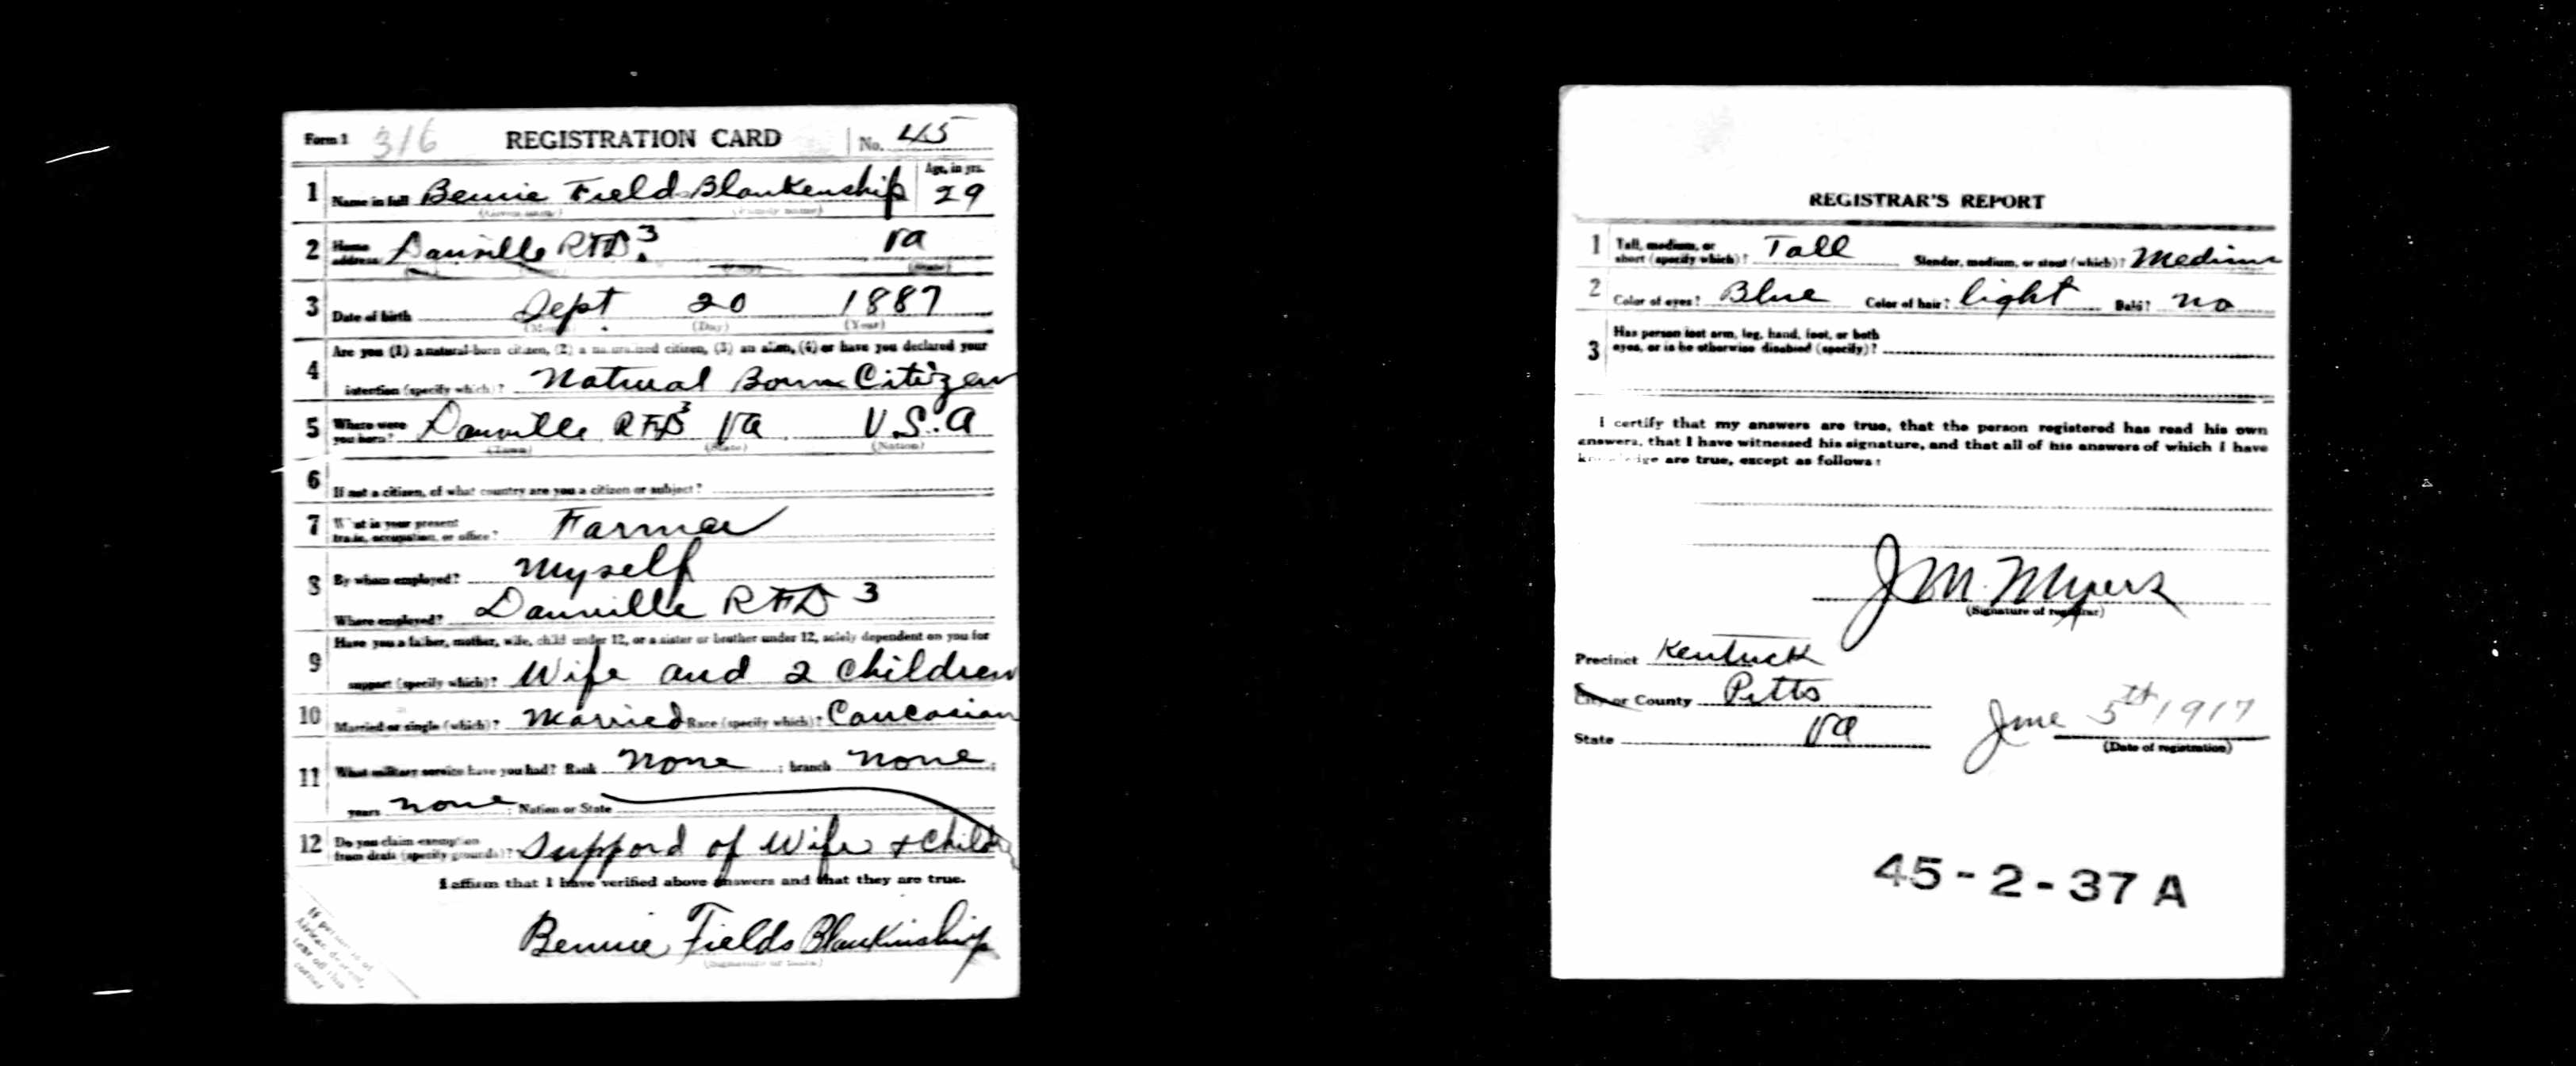 Form 1 316 REGISTRATION CARD No. 45
1 Name in full Bennie Field Blankenship Age, in yrs. 29
(Given name) (Family name)
2 Home address Danville RFD 3 Va
(State)
3 Date of birth Sept 20 1887
(Month) (Day) (Year)
4 Are you (1) a natural-born citizen, (2) a naturalized citizen, (3) an alien, (4) or have you declared your
intention (specify which)? Natural Born Citizen
5 Where were you born? Danville RFD 3 Va U.S.A
(Town) (State) (Nation)
6 If not a citizen, of what country are you a citizen or subject?
7 What is your present trade, occupation, or office? Farmer
8 By whom employed? Myself
Where employed? Danville RFD 3
9 Have you a father, mother, wife, child under 12, or a sister or brother under 12, solely dependent on you for
support (specify which)? Wife and 2 children
10 Married or single (which)? Married Race (specify which)? Caucasian
11 What military service have you had? Rank none ; branch none ;
years none ; Nation or State
12 Do you claim exemption from draft (specify grounds)? Suppord of Wife + Child
I affirm that I have verified above answers and that they are true.
Bennie Fields Blankinship
If person is of
African descent,
tear off this
corner
REGISTRAR'S REPORT
1 Tall, medium, or short (specify which)? Tall Slender, medium, or stout (which)? Medium
2 Color of eyes? Blue Color of hair? light Bald? no
3 Has person lost arm, leg, hand, foot, or both
eyes, or is he otherwise disabled (specify)?
I certify that my answers are true, that the person registered has read his own
answers, that I have witnessed his signature, and that all of his answers of which I have
knowledge are true, except as follows:
J M. Myers
(Signature of registrar)
Precinct Kentuck
City or County Pitts
State Va
June 5th 1917
(Date of registration)
45-2-37 A